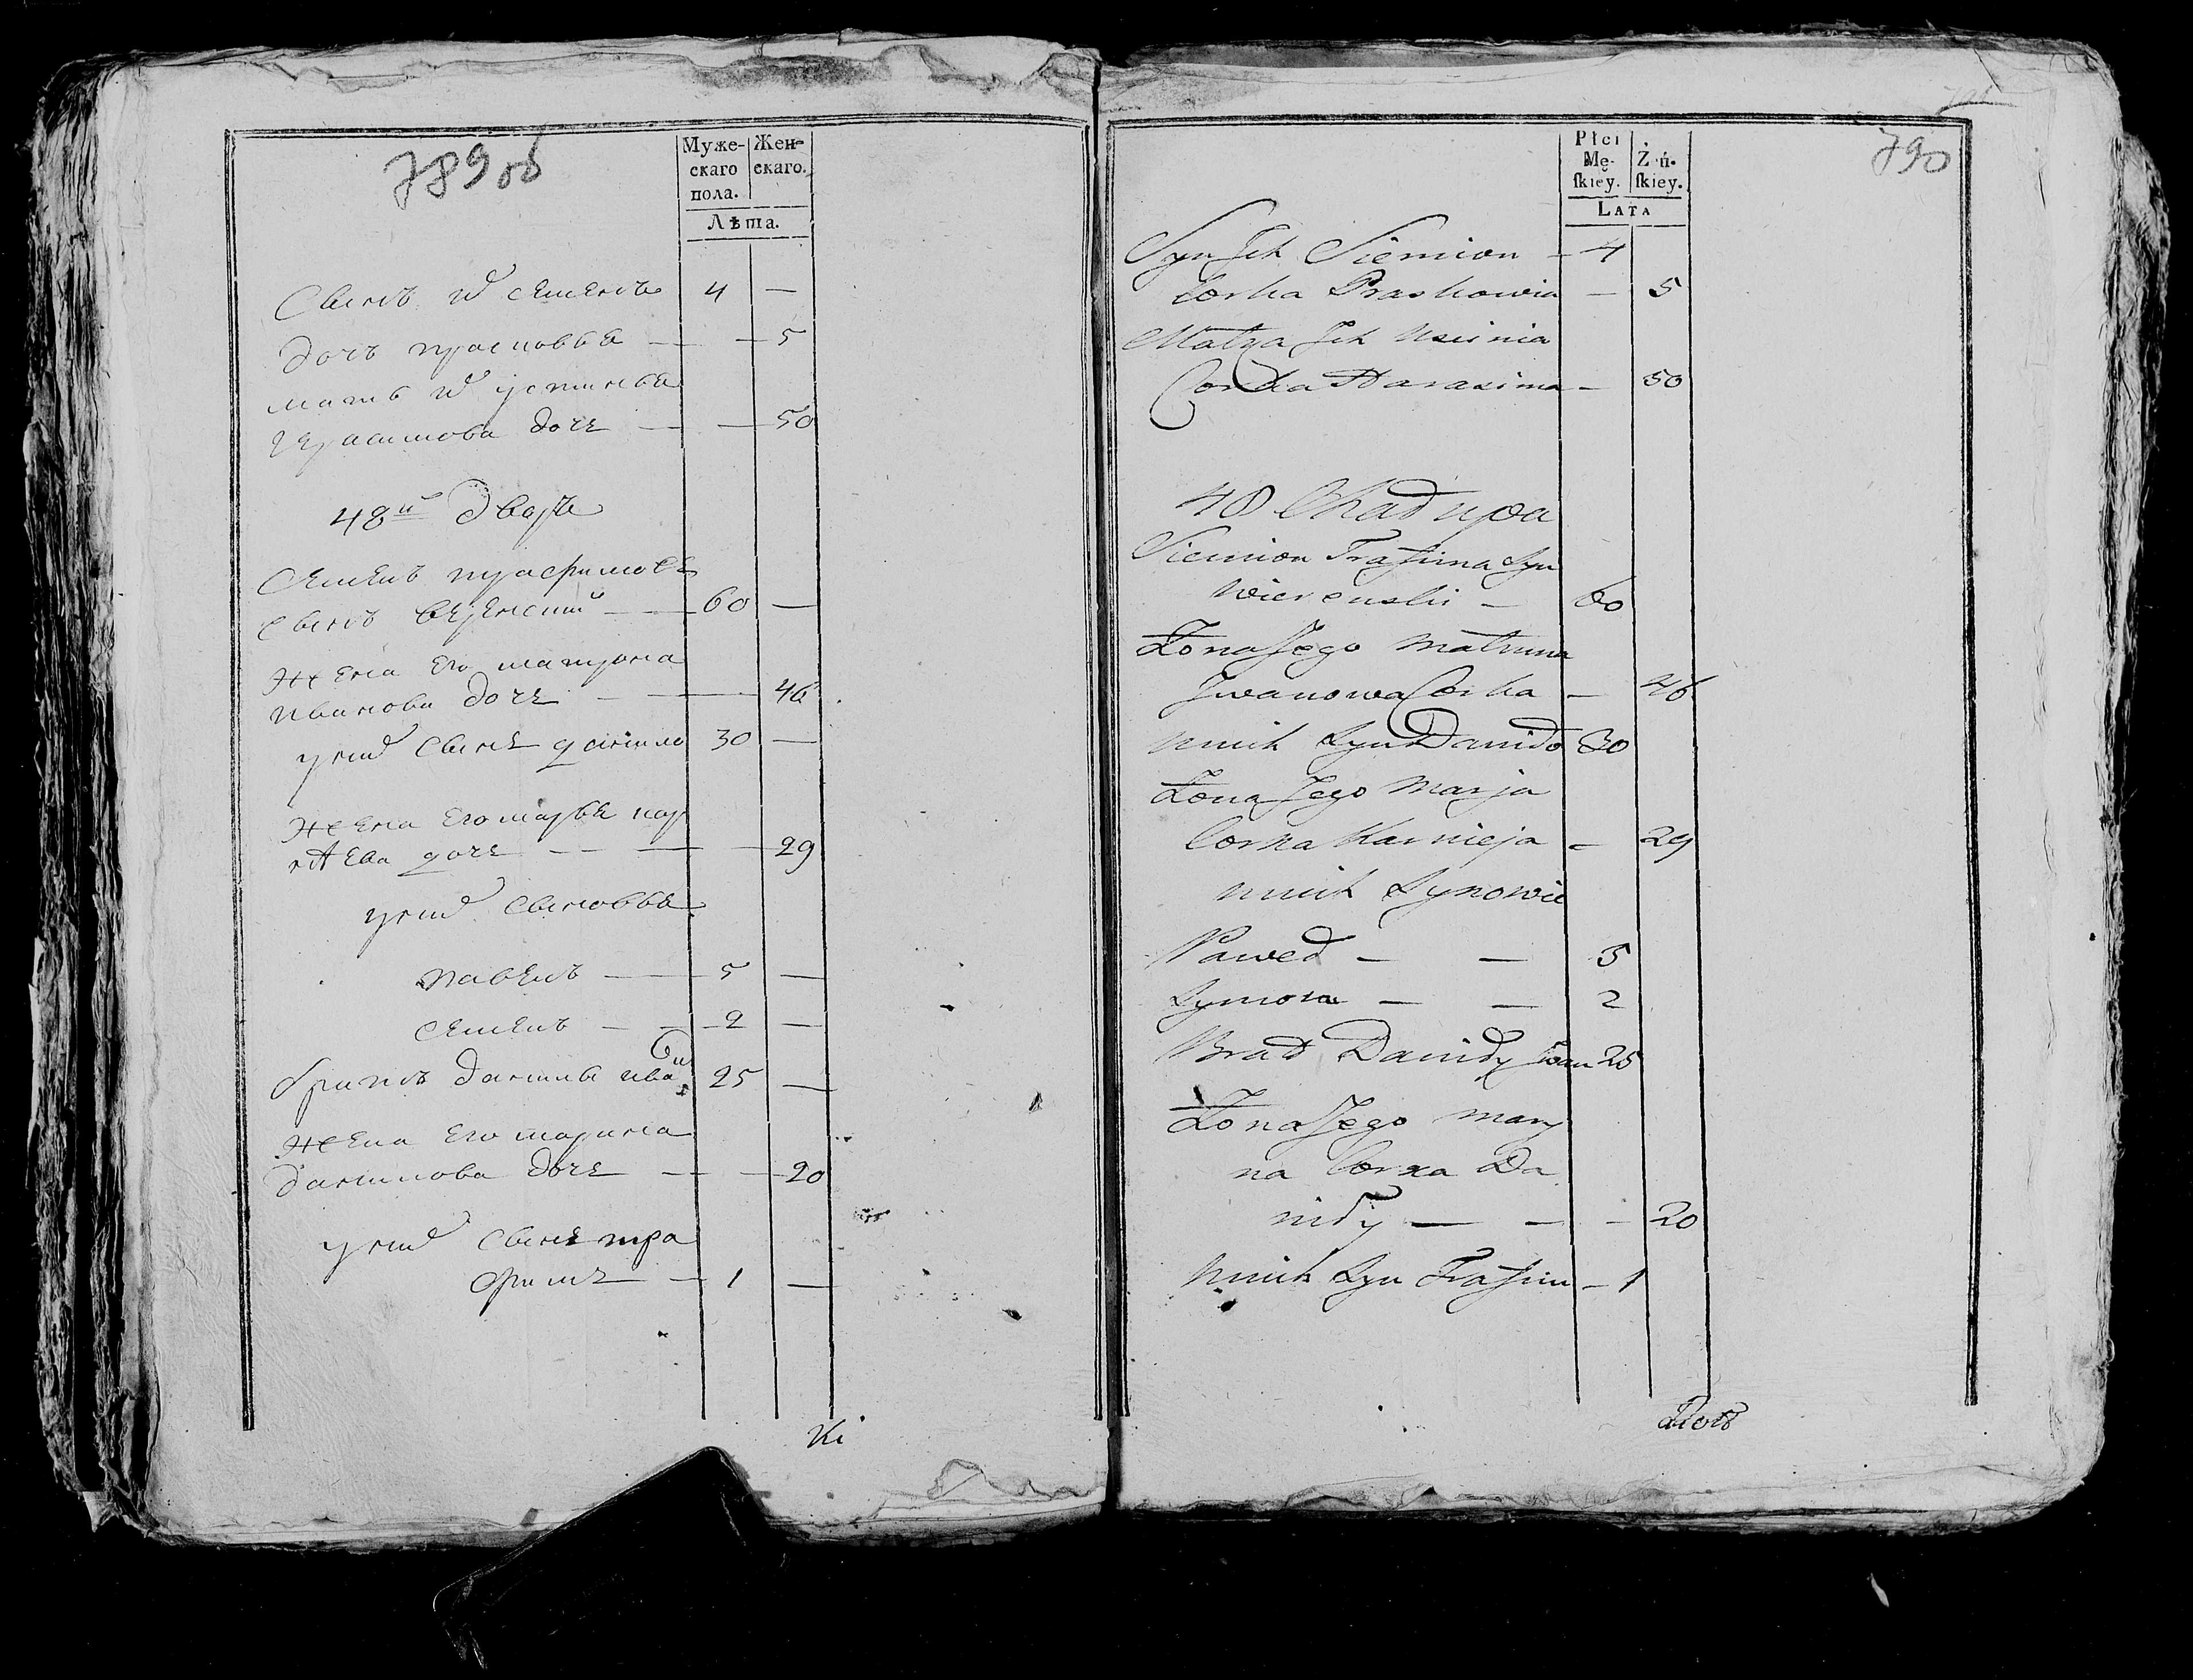 789 об
Муже- Жен-
скаго скаго.
пола.
Лѣта.
Сынъ их семенъ 4 —
дочь прасковья — — 5
мать их устинья
герасимова дочь — — 50
48й дворъ
Семенъ трофимовъ
сынъ — 60 —
жена Его матрона
иванова дочь — — 46
у них сынъ данило 30 —
жена Его марья кар
нѣева дочь — — 29
у них сыновья
павелъ — 5 —
семенъ — 2 —
данилы иван 25 —
жена Его марина
данилова дочь — — 20
у них сынъ тра
фимъ — 1 —
Ki
790
Płci
Mę- Ż ń-
ſkiey. ſkiey.
Lata
Syn Ich Siemion — 4
Corka Praskowia — 5
Matka Ich
Corka Harasima — 50
48 Chałupa
Siemion Trafima Syn
— 60
Żona Jego Matruna
Iwanowa Corka — 46
u nich Syn Daniło 30
Żona Jego Marja
Corka Karnieja — 29
u nich Synowie
Paweł — — 5
Symon — — 2
Brat Daniły Iwan 25
Żona Jego Mary
na Corka Da
niły — — — 20
u nich Syn Trafim — 1